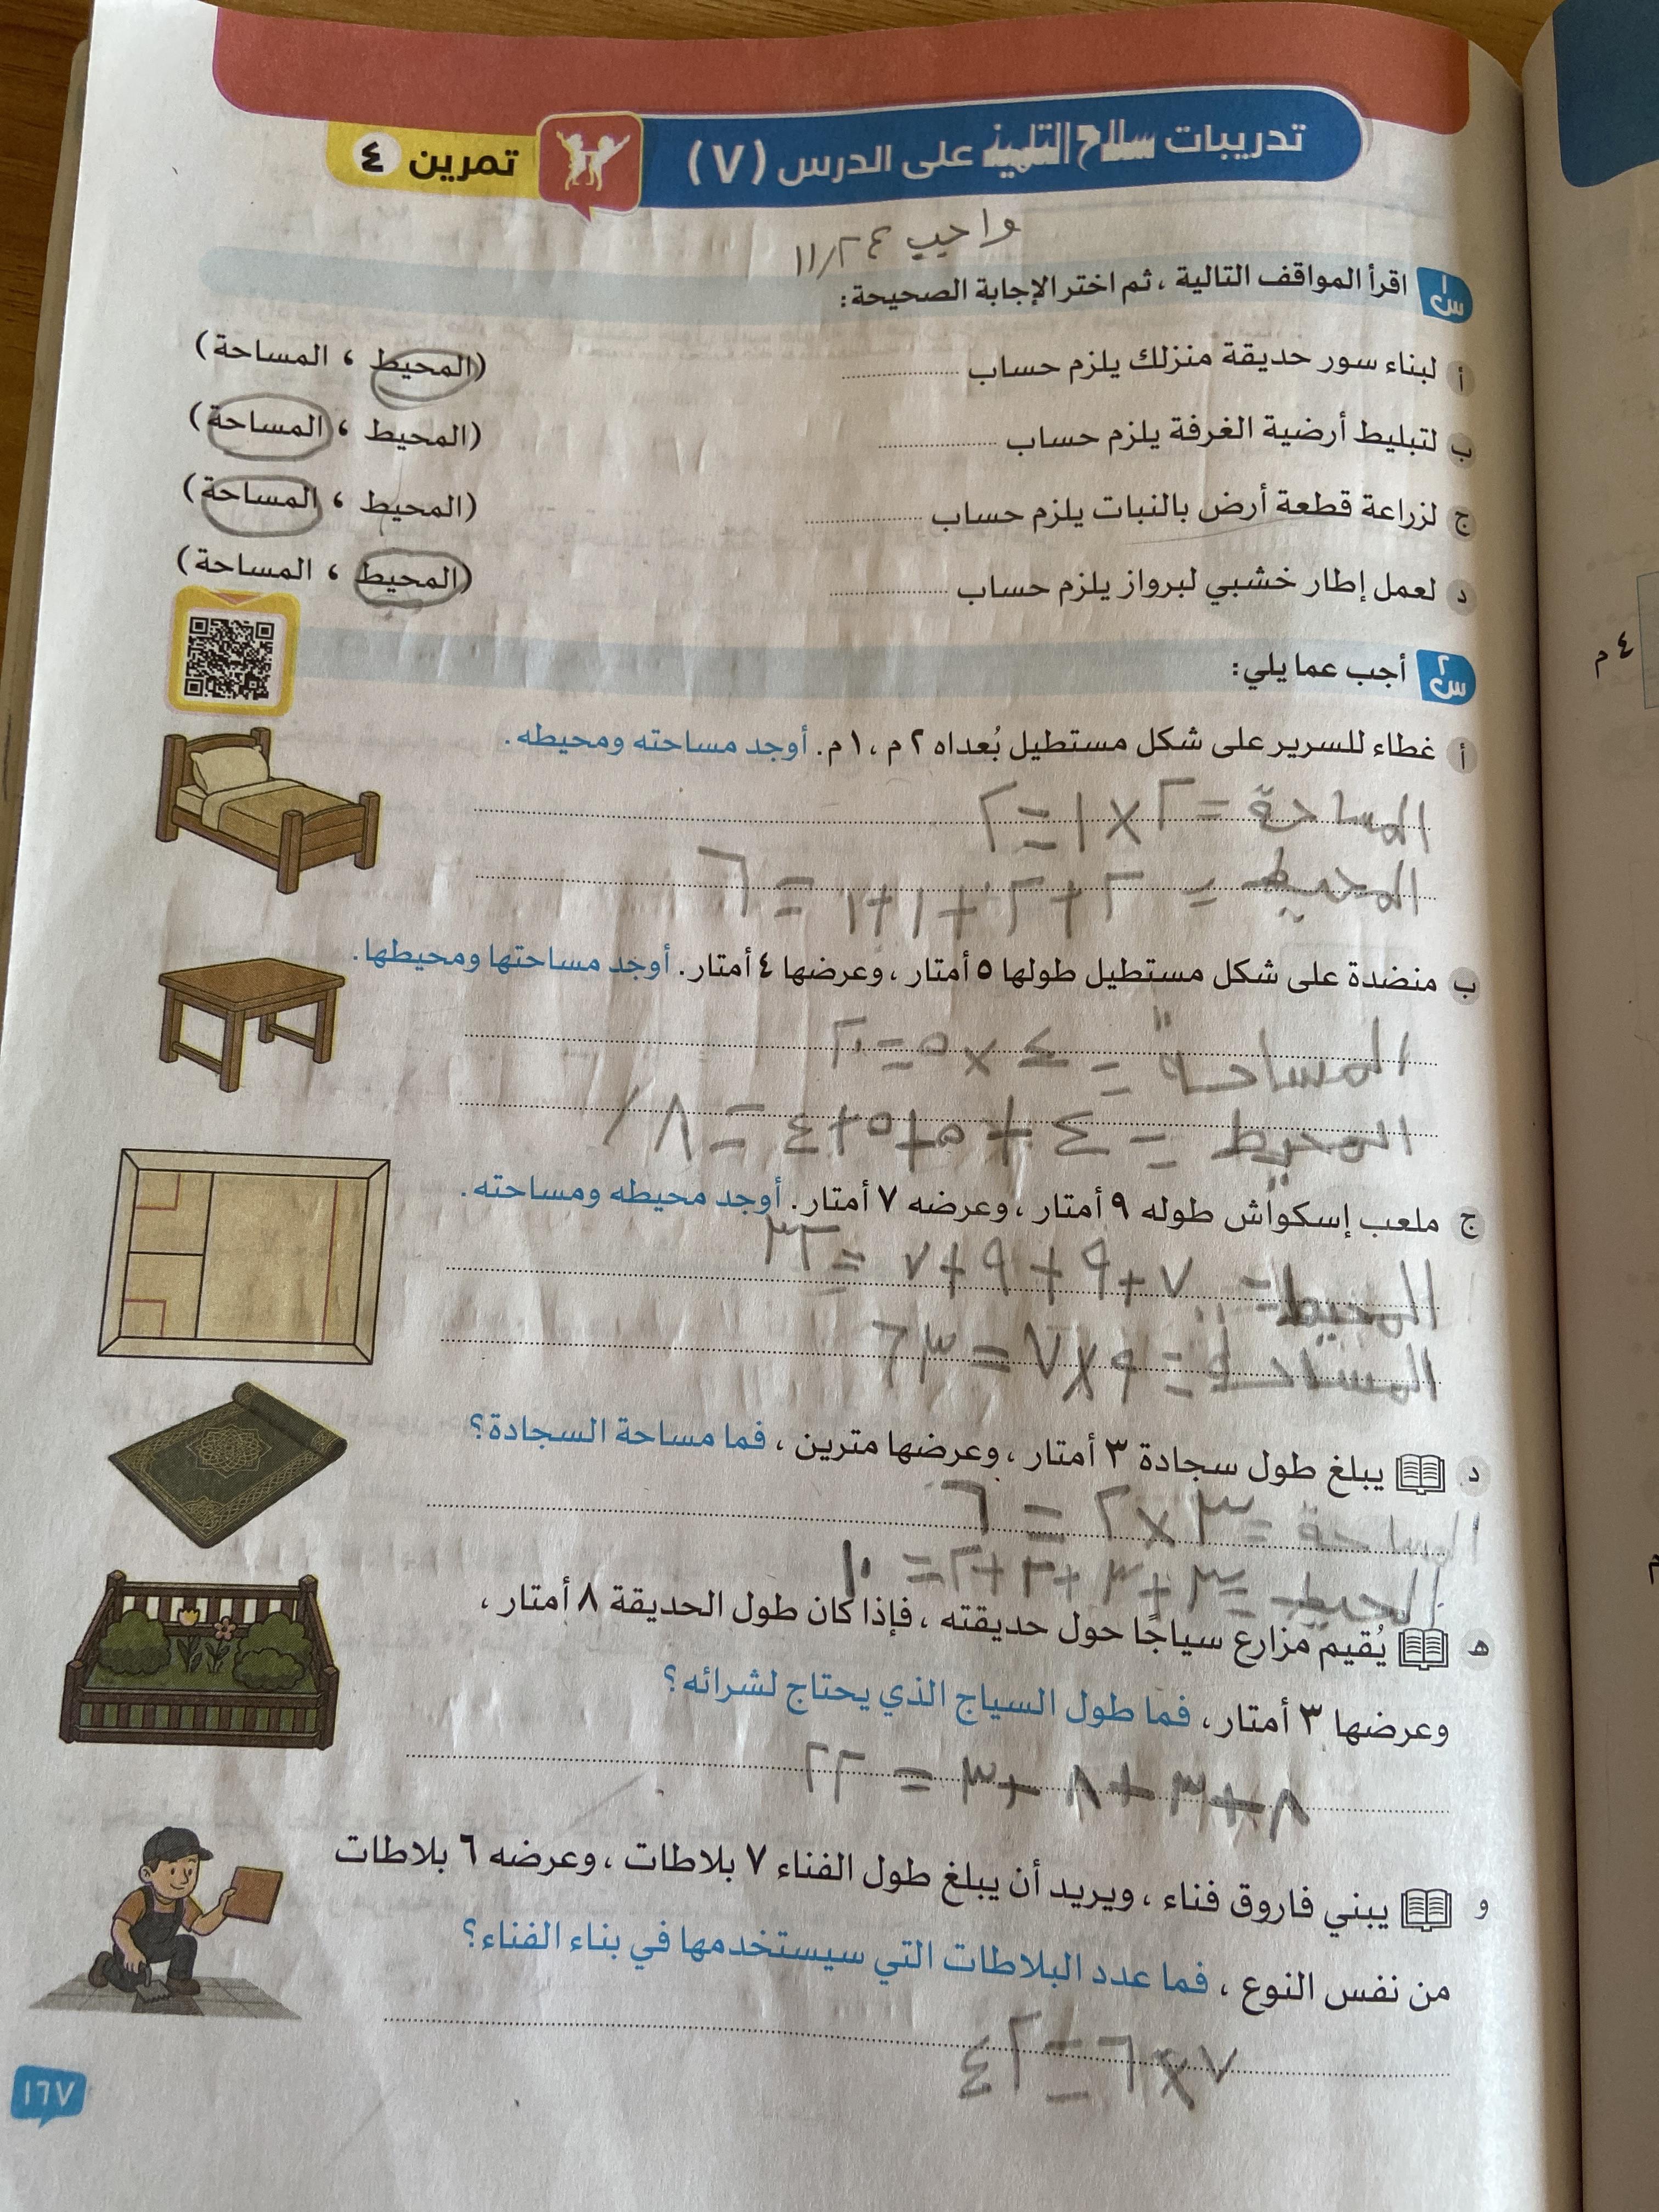 تدريبات سلاح التلميذ على الدرس (٧)
تمرين ٤
واجب ١١/٢٤
س١ اقرأ المواقف التالية ، ثم اختر الإجابة الصحيحة:
أ لبناء سور حديقة منزلك يلزم حساب .................... (المحيط ، المساحة)
ب لتبليط أرضية الغرفة يلزم حساب .................... (المحيط ، المساحة)
ج لزراعة قطعة أرض بالنبات يلزم حساب .................... (المحيط ، المساحة)
د لعمل إطار خشبي لبرواز يلزم حساب .................... (المحيط ، المساحة)
س٢ أجب عما يلي:
أ غطاء للسرير على شكل مستطيل بُعداه ٢ م ، ١ م. أوجد مساحته ومحيطه.
المساحة = ٢ × ١ = ٢
المحيط = ٢ + ٢ + ١ + ١ = ٦
ب منضدة على شكل مستطيل طولها ٥ أمتار ، وعرضها ٤ أمتار. أوجد مساحتها ومحيطها.
المساحة = ٤ × ٥ = ٢٠
المحيط = ٤ + ٥ + ٥ + ٤ = ١٨
ج ملعب إسكواش طوله ٩ أمتار ، وعرضه ٧ أمتار. أوجد محيطه ومساحته.
المحيط = ٧ + ٩ + ٩ + ٧ = ٣٢
المساحة = ٩ × ٧ = ٦٣
د يبلغ طول سجادة ٣ أمتار ، وعرضها مترين ، فما مساحة السجادة؟
المساحة = ٣ × ٢ = ٦
المحيط = ٣ + ٣ + ٢ + ٢ = ١٠
ه يُقيم مزارع سياجًا حول حديقته ، فإذا كان طول الحديقة ٨ أمتار ،
وعرضها ٣ أمتار ، فما طول السياج الذي يحتاج لشرائه؟
٨ + ٣ + ٨ + ٣ = ٢٢
و يبني فاروق فناء ، ويريد أن يبلغ طول الفناء ٧ بلاطات ، وعرضه ٦ بلاطات
من نفس النوع ، فما عدد البلاطات التي سيستخدمها في بناء الفناء؟
٧ × ٦ = ٢٤
١٦٧
٤ م
م